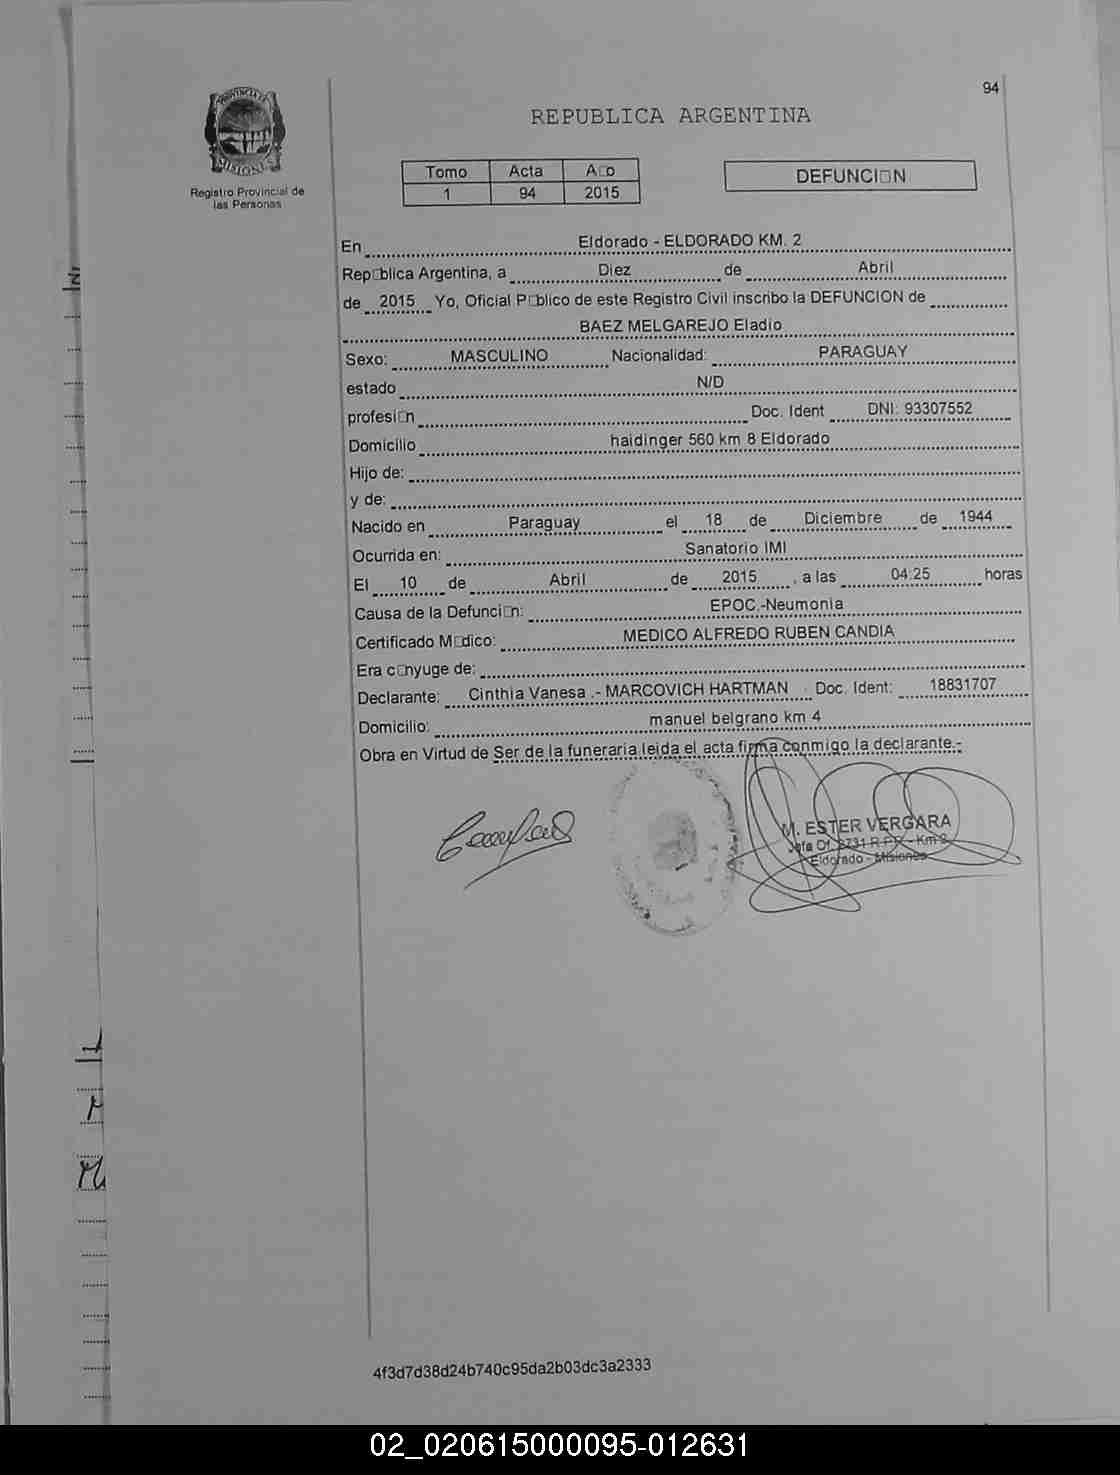 94
PROVINCIA DE
MISIONES
Registro Provincial de
las Personas
REPUBLICA ARGENTINA
Tomo Acta A□o
1 94 2015
DEFUNCI□N
En Eldorado - ELDORADO KM. 2
Rep□blica Argentina, a Diez de Abril
de 2015 Yo, Oficial P□blico de este Registro Civil inscribo la DEFUNCION de
BAEZ MELGAREJO Eladio
Sexo: MASCULINO Nacionalidad: PARAGUAY
estado N/D
profesi□n Doc. Ident DNI: 93307552
Domicilio haidinger 560 km 8 Eldorado
Hijo de:
y de:
Nacido en Paraguay el 18 de Diciembre de 1944
Ocurrida en: Sanatorio IMI
El 10 de Abril de 2015, a las 04:25 horas
Causa de la Defunci□n: EPOC.-Neumonia
Certificado M□dico: MEDICO ALFREDO RUBEN CANDIA
Era c□nyuge de:
Declarante: Cinthia Vanesa .- MARCOVICH HARTMAN Doc. Ident: 18831707
Domicilio: manuel belgrano km 4
Obra en Virtud de Ser de la funeraria leida el acta firma conmigo la declarante.-
M. ESTER VERGARA
Jefa Of. 3731 R.P.P. - Km 2
Eldorado - Misiones
4f3d7d38d24b740c95da2b03dc3a2333
02_020615000095-012631